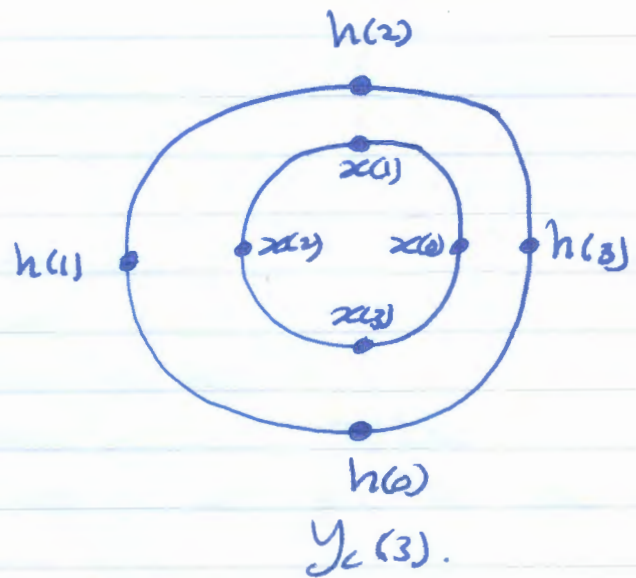 h(2)
x(1)
h(1) x(2) x(0) h(3)
x(3)
h(0)
y_c(3).